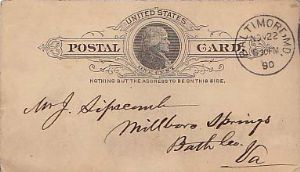 UNITED STATES
POSTAL CARD
ONE CENT
NOTHING BUT THE ADDRESS TO BE ON THIS SIDE.
BALTIMORE, MD.
NOV 22
30PM
90
Mr J. Lipscomb
Millboro Springs
Bath Co.
Va